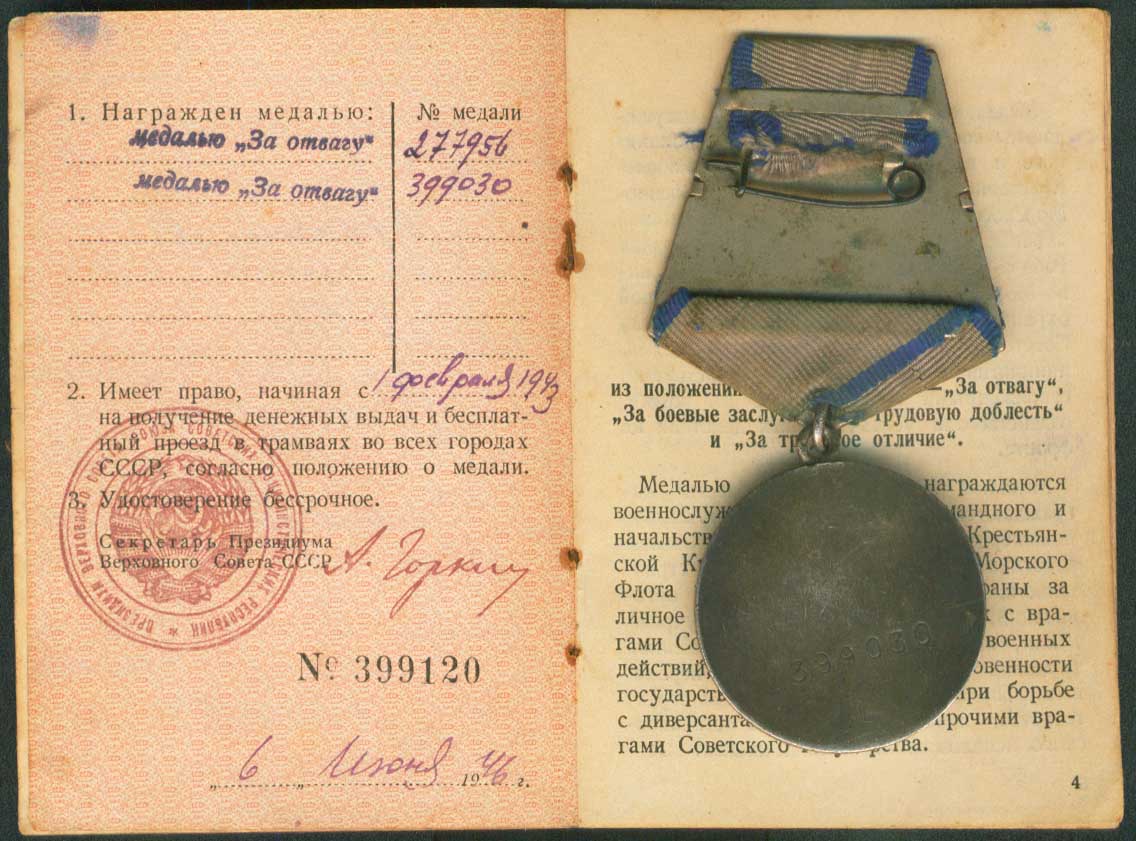 1. Награжден медалью: № медали
медалью „За отвагу“ 277956
медалью „За отвагу“ 399030
2. Имеет право, начиная с 1 февраля 1943
на получение денежных выдач и бесплат-
ный проезд в трамваях во всех городах
СССР, согласно положению о медали.
3. Удостоверение бессрочное.
Секретарь Президиума
Верховного Совета СССР А. Горкин
№ 399120
„ 6 „ Июня 1946 г.
из положени „За отвагу“,
„За боевые заслу трудовую доблесть“
и „За тр ое отличие“.
Медалью награждаются
военнослуж мандного и
начальств Крестьян-
ской К Морского
Флота раны за
личное х с вра-
гами Со военных
действий, овенности
государств при борьбе
с диверсанта прочими вра-
гами Советского рства.
399030
4